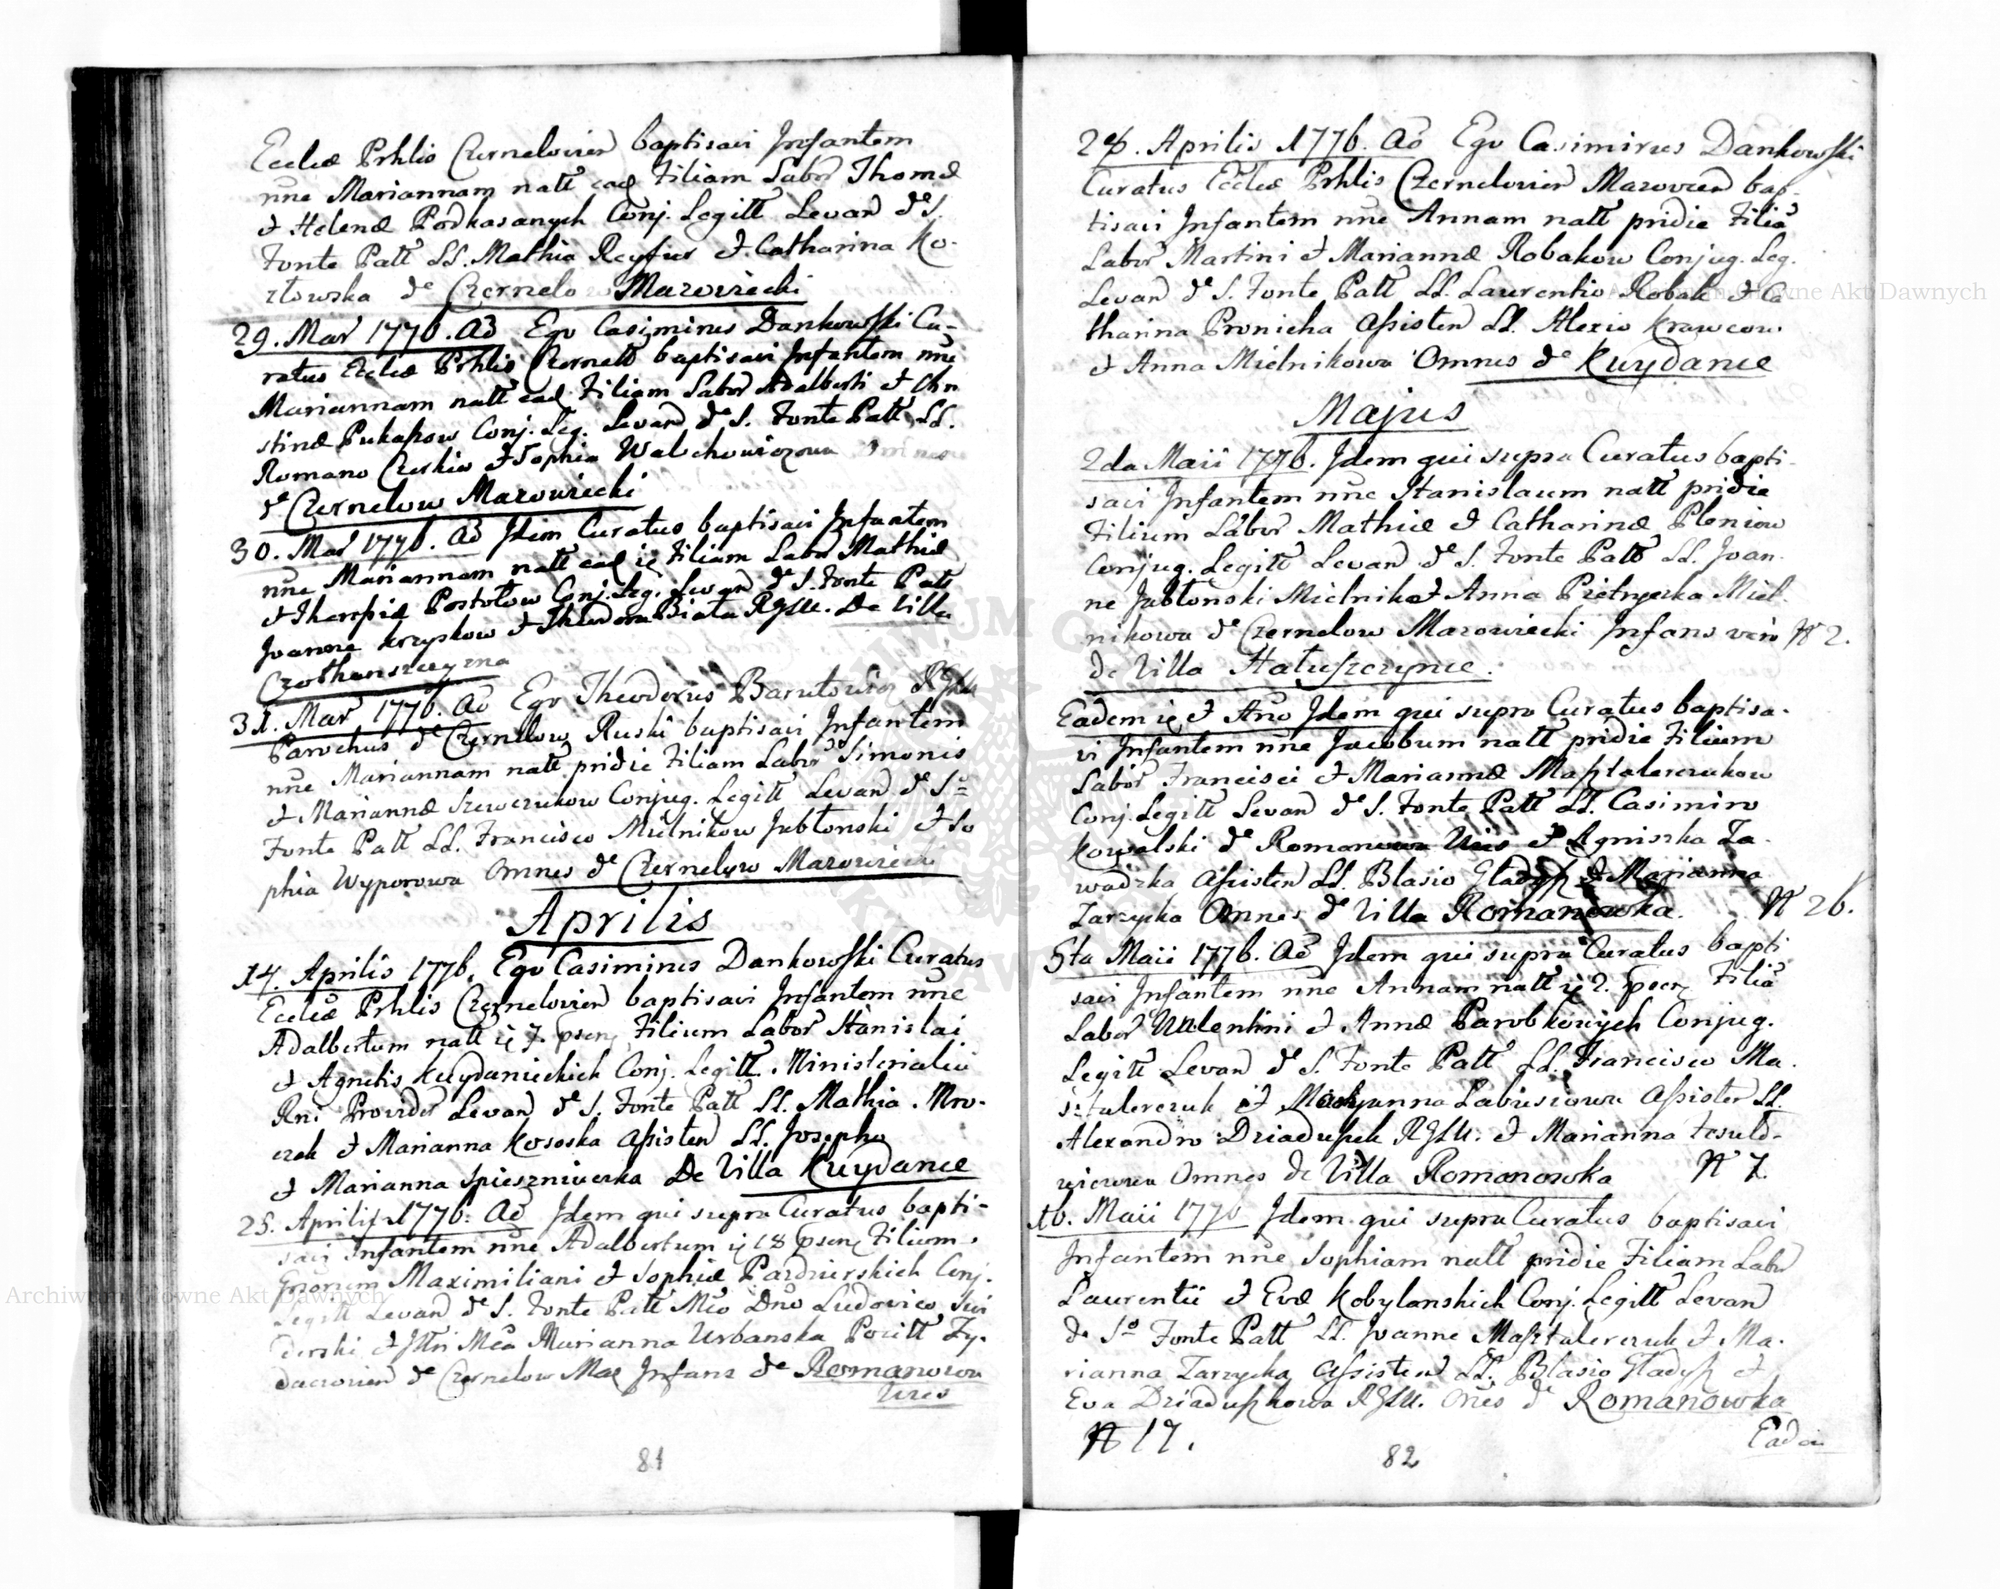 Eccliæ Prhlis Czernelovien baptisavi Infantem
nñe Mariannam natt eađ Filiam Labor Thomæ
et Helenæ Podkasanych Conj. Legitt Levan de S.
Fonte Patt LL. Mathia Reyfur et Catharina Ko-
złowska de Czernelo Mazowiecki
29. Mar 1776. Ao Ego Casimirus Dankowski Cu-
ratus Eccliæ Prhlis Czernell baptisavi Infantem nñe
Mariannam natt eađ Filiam Labor Adalberti et Chri
stinæ Pukaszow Conj. Leg. Levan de S. Fonte Patt LL.
Romano Czerkie et Sophia Walchowiczowa Omnes
de Czernelow Mazowiecki
30. Mar 1776. Ao Idem Curatus baptisavi Infantem
nñe Mariannam natt eađ Filiam Labor Mathiæ
et Postołow Conj. Leg. Levan de S. Fonte Patt
Joanne Krzyskow et Theodora Biała RGLU. De Villa
31. Mar 1776. Ao Ego Theodorus Barutowicz RGLU
Parochus de Czernelow Ruski baptisavi Infantem
nñe Mariannam natt pridie Filiam Labor Simonis
et Mariannæ Szewczukow Conjug. Legitt Levan de S
Fonte Patt LL. Francisco Mielnikow Jabłonski et So
phia Wyporowa Omnes de Czernelow Mazowiecki
Aprilis
14. Aprilis 1776. Ego Casimirus Dankowski Curatus
Eccliæ Prhlis Czernelovien baptisavi Infantem nñe
Adalbertum natt 7. Filium Labor Stanislai
et Agnetis Kuydanieckich Conj. Legitt. Ministerialiu
Rni Provider Levan de S. Fonte Patt LL. Mathia Mro-
czek et Marianna Kososka Assisten LL. Josepho
et Marianna Spieszniuerka De Villa Kuydance
25. Aprilis 1776. Ao Idem qui supra Curatus bapti-
savi Infantem nñe Adalbertum 18 Filium
Maximiliani et Sophiæ Conj.
Legitt Levan de S. Fonte Patt Mco Dno Ludovico Swi
derski et Mca Marianna Urbanska
de Czernelow Maz Infans de Romanowa
Ures
81
28. Aprilis 1776. Ao Ego Casimirus Dankowski
Curatus Eccliæ Prhlis Czernelovien Mazovien bap-
tisavi Infantem nñe Annam natt pridie Filiã
Labor Martini et Mariannæ Robakow Conjug. Leg.
Levan de S. Fonte Patt LL. Laurentio Robak et Ca
tharina Pronicha Assisten LL. Alexio Krawcow
et Anna Mielnikowa Omnes de Kuydance
Majus
2da Maii 1776. Idem qui supra Curatus bapti-
savi Infantem nñe Stanislaum natt pridie
Filium Labor Mathiæ et Catharinæ Pleniow
Conjug. Legitt Levan de S. Fonte Patt LL. Joan-
ne Jabłonski Mielnik et Anna Pietryczka Miel-
nikowa de Czernelow Mazowiecki Infans vero N 2.
de Villa Hałuszczynce.
Eadem et Ano Idem qui supra Curatus baptisa-
vi Infantem nñe Jacobum natt pridie Filium
Labor Francisci et Mariannæ Masztalerczukow
Conj. Legitt Levan de S. Fonte Patt LL. Casimiro
Kowalski de Romanowa Ures et Agniszka Za-
wadzka Assisten LL. Blasio Gładysz et Marianna
Zarzycka Omnes de Villa Romanowka. N 26.
5ta Maii 1776. Ao Idem qui supra Curatus bapti
savi Infantem nñe Annam natt 2. Filiã
Labor Valentini et Annæ Parobkowych Conjug.
Legitt Levan de S. Fonte Patt LL. Francisco Ma-
sztalerczuk et Maryanna Labusiowa Assisten LL.
Alexandro Dziaduszek RGLU. et Marianna
Omnes de Villa Romanowka N 7.
16. Maii 1776 Idem qui supra Curatus baptisavi
Infantem nñe Sophiam natt pridie Filiam Labor
Laurentii et Evæ Kobylanskich Conj. Legitt Levan
de So Fonte Patt LL. Joanne Masztalerczuk et Ma-
rianna Zarzycka Assisten LL. Blasio Gładysz et
Eva Dziaduszkowa RGLU. Ones de Romanowka
N 17.
82
Eadem
Archiwum Główne Akt Dawnych
Archiwum Główne Akt Dawnych